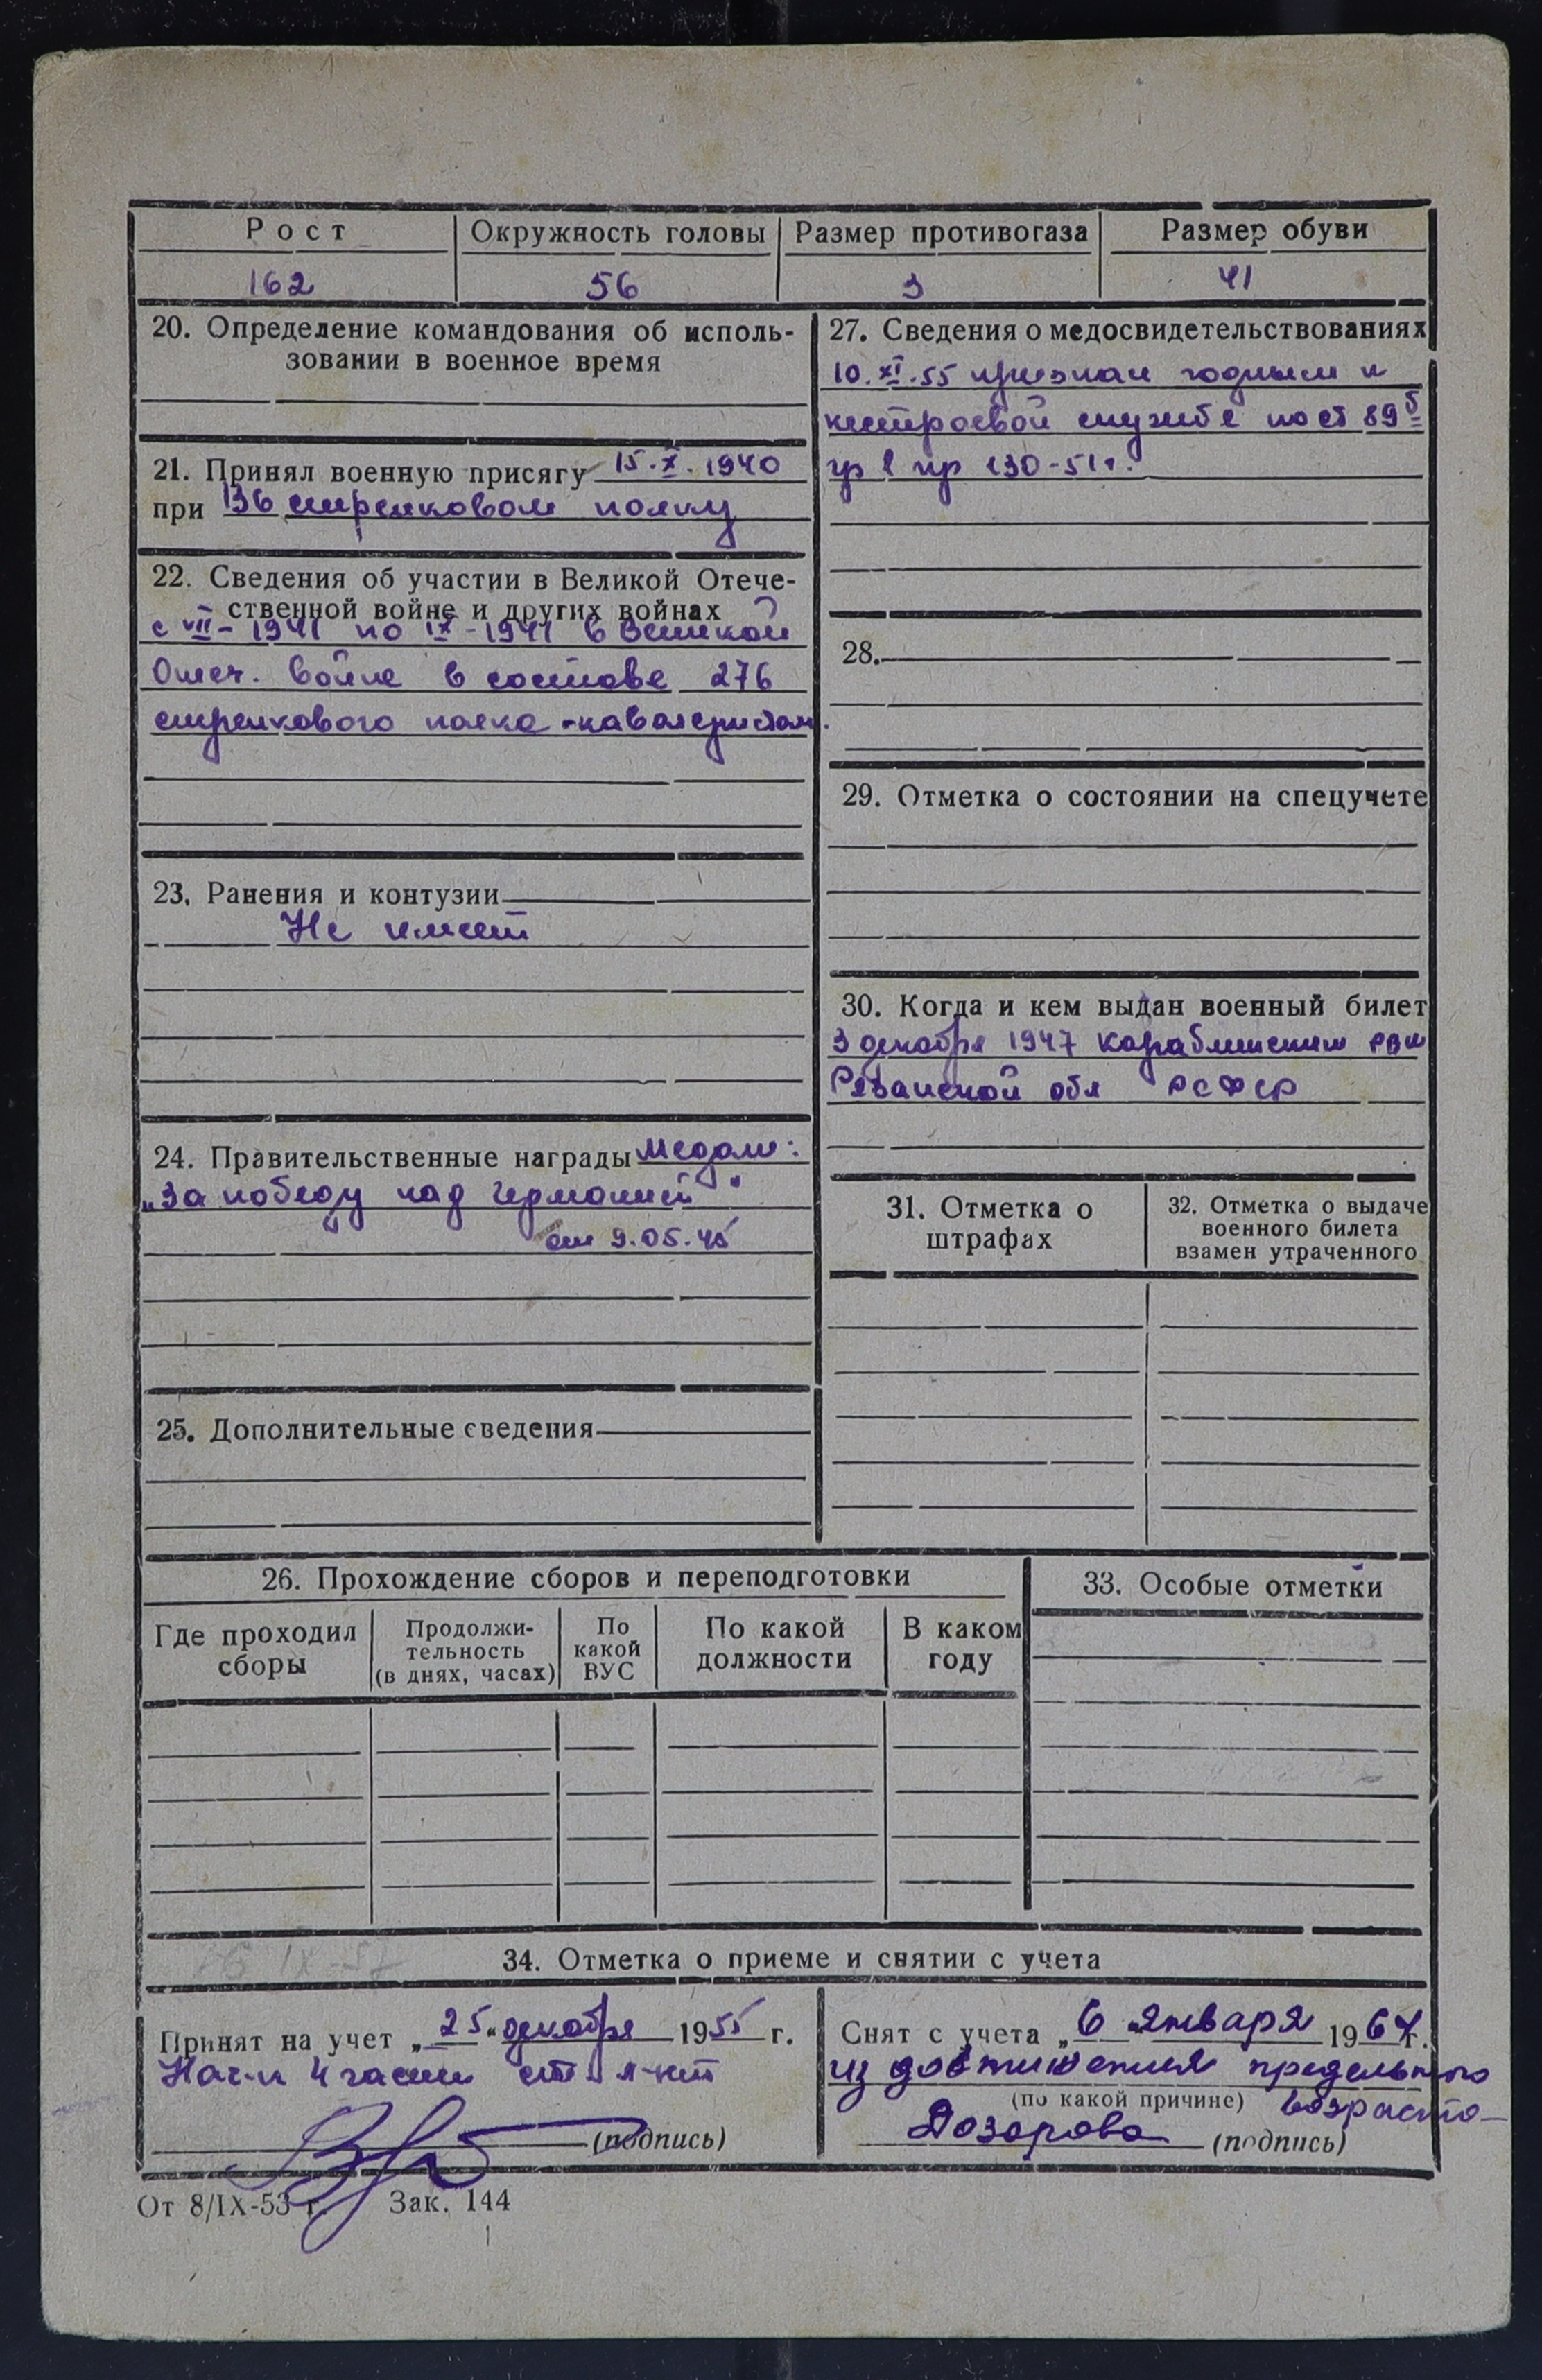 Рост
Окружность головы
Размер противогаза
Размер обуви
162
56
3
41
20. Определение командования об исполь-
зовании в военное время
21. Принял военную присягу 15.X.1940
при 136 стрелковом полку
22. Сведения об участии в Великой Отече-
ственной войне и других войнах
с VII-1941 по IX-1941 в Великой
Отеч. войне в составе 276
стрелкового полка - кавалеристом.
23. Ранения и контузии
Не имеет
24. Правительственные награды Медали:
„За победу над Германией"
от 9.05.45
25. Дополнительные сведения
27. Сведения о медосвидетельствованиях
10.XI.55 признан годным к
нестроевой службе по ст 89б
гр I пр 130-51г.
28.
29. Отметка о состоянии на спецучете
30. Когда и кем выдан военный билет
3 декабря 1947 Кораблинским РВК
Рязанской обл РСФСР
31. Отметка о
штрафах
32. Отметка о выдаче
военного билета
взамен утраченного
26. Прохождение сборов и переподготовки
33. Особые отметки
Где проходил
сборы
Продолжи-
тельность
(в днях, часах)
По
какой
ВУС
По какой
должности
В каком
году
34. Отметка о приеме и снятии с учета
Принят на учет „25" декабря 1955 г.
Нач-к 4 части ст л-нт
(подпись)
Снят с учета „6" января 1967г.
из достижения предельного
(по какой причине) возраста
(подпись)
От 8/IX-53 г. Зак. 144